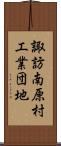 諏訪南原村
工業団地